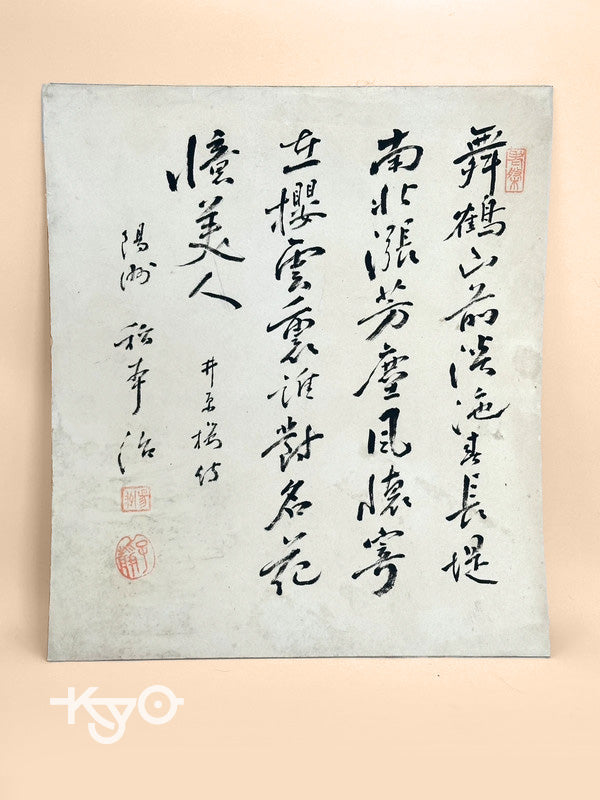 舞鶴山前淡沱春長堤
南北漲芳塵風懷寄
在櫻雲裏誰對名花
憶美人
井
陽洲 本治
Kyo